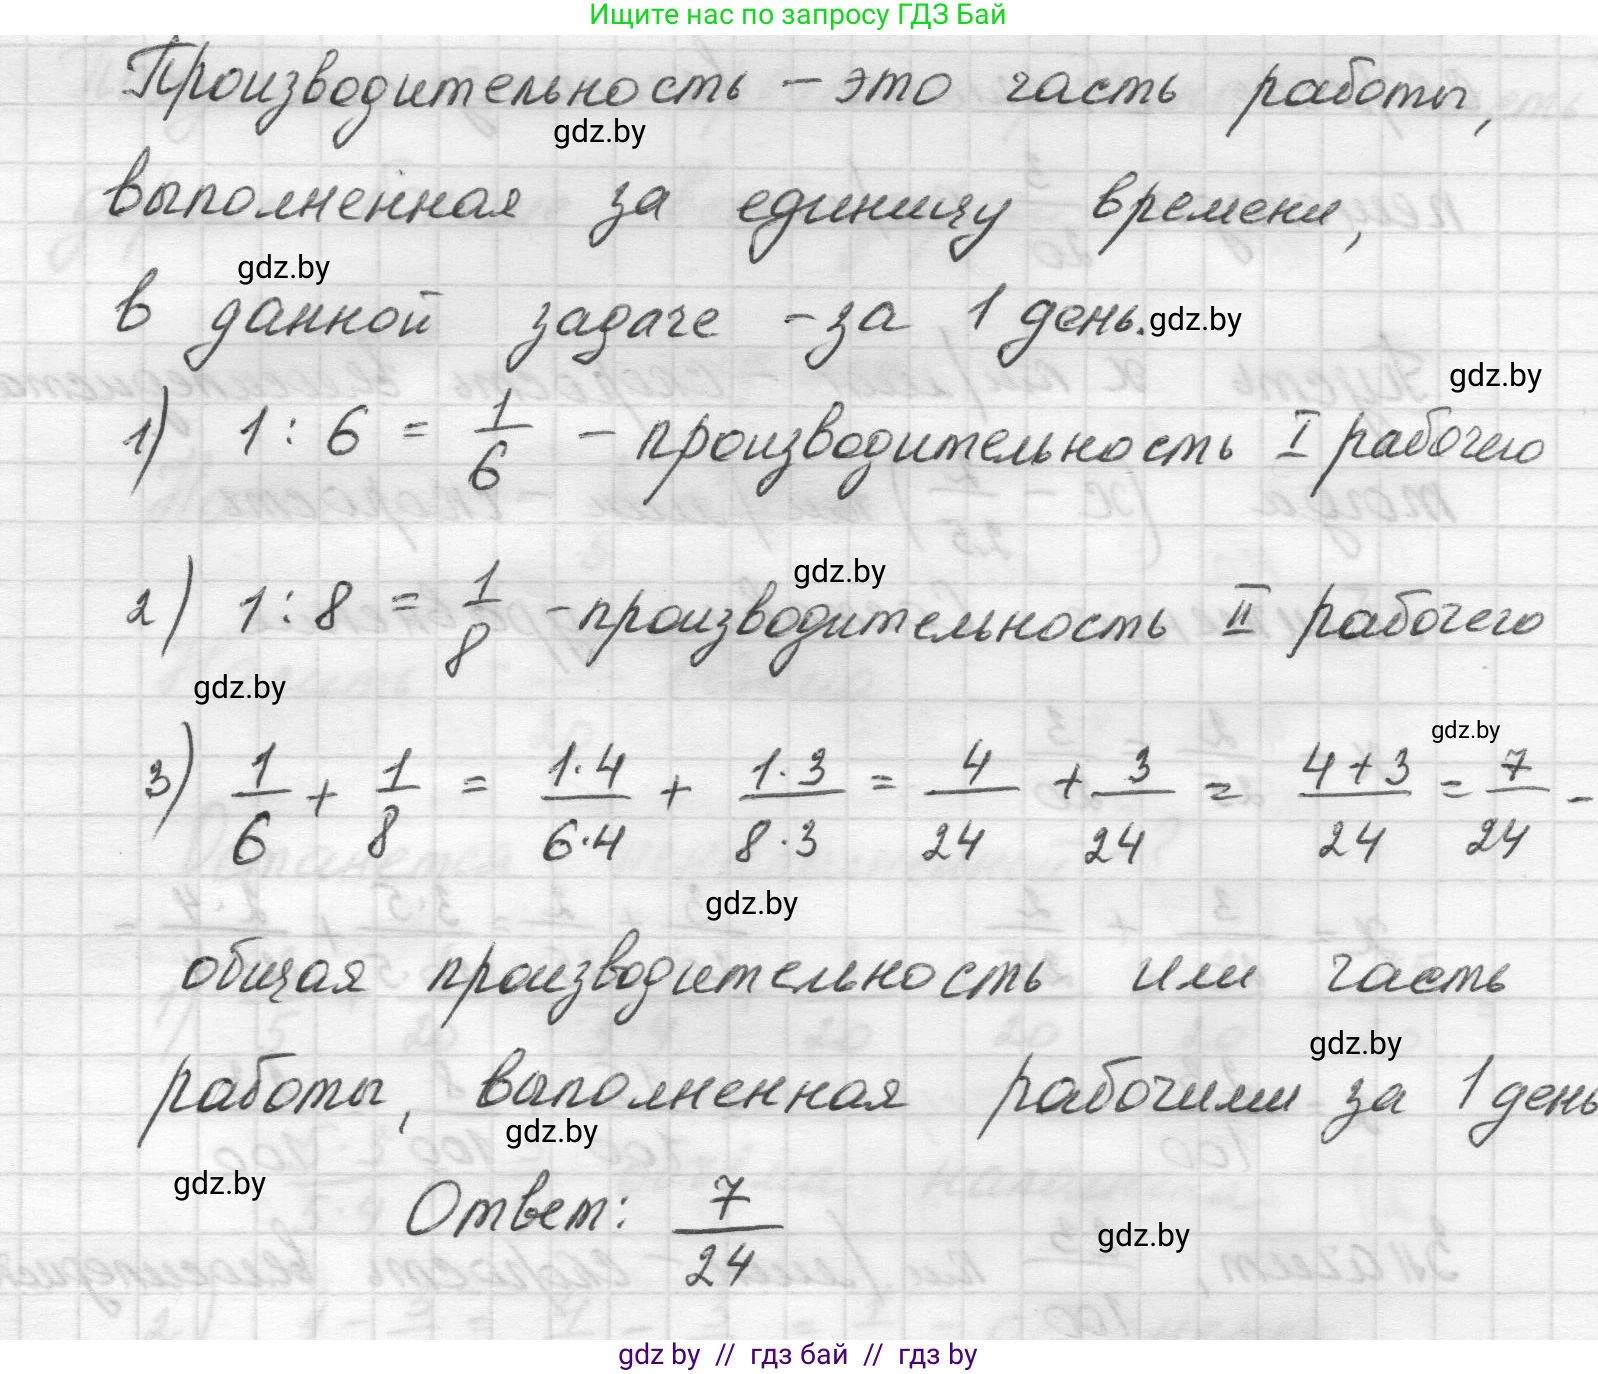 Ищите нас по запросу ГДЗ Бай
Производительность – это часть работы,
gdz.by
выполненная за единицу времени,
gdz.by
в данной задаче – за 1 день.
gdz.by
gdz.by
1) 1 : 6 = 1/6 – производительность I рабочего
gdz.by
2) 1 : 8 = 1/8 – производительность II рабочего
gdz.by
gdz.by
3) 1/6 + 1/8 = 1·4/6·4 + 1·3/8·3 = 4/24 + 3/24 = 4+3/24 = 7/24 –
gdz.by
общая производительность или часть
gdz.by
работы, выполненная рабочими за 1 день
gdz.by
gdz.by
Ответ: 7/24
gdz.by
gdz by // гдз бай // гдз by